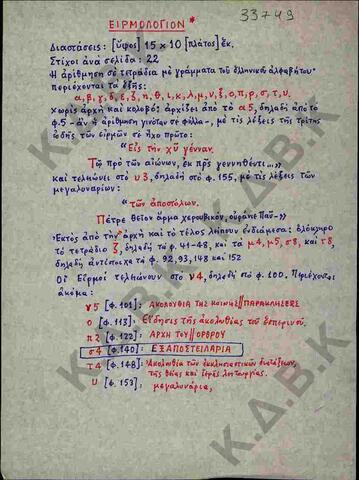 33749
ΕΙΡΜΟΛΟΓΙΟΝ *
Διαστάσεις: [ὕψος] 15 x 10 [πλάτος] ἑκ.
Στίχοι ἀνὰ σελίδα: 22
Ἡ ἀρίθμηση σὲ τετράδια μὲ γράμματα τοῦ ἑλληνικοῦ ἀλφαβήτου·
περιέχονται τὰ ἑξῆς:
α, β, γ, δ, ε, ζ, η, θ, ι, κ, λ, μ, ν, ξ, ο, π, ρ, σ, τ, υ.
Χωρὶς ἀρχὴ καὶ κολοβό: ἀρχίζει ἀπὸ τὸ α5, δηλαδὴ ἀπὸ τὸ
φ. 5 - ἂν ἡ ἀρίθμηση γινόταν σὲ φύλλα -, μὲ τὶς λέξεις τῆς τρίτης
ὠδῆς τῶν εἱρμῶν σὲ ἦχο πρῶτο:
"Εἰς τὴν χῦ γένναν.
Τῷ πρὸ τῶν αἰώνων, ἐκ πρς γεννηθέντι..."
καὶ τελειώνει στὸ υ3, δηλαδὴ στὸ φ. 155, μὲ τὶς λέξεις τῶν
μεγαλυναρίων:
"τῶν ἀποστόλων.
Πέτρε θεῖον ἅρμα χερουβικόν, οὐράνιε Παῦ-"
Ἐκτὸς ἀπὸ τὴν ἀρχὴ καὶ τὸ τέλος λείπουν ἐνδιάμεσα: ὁλόκληρο
τὸ τετράδιο ζ, δηλαδὴ τὰ φ. 41-48, καὶ τὰ μ4, μ5, σ8, καὶ τ8,
δηλαδὴ ἀντίστοιχα τὰ φ. 92, 93, 148 καὶ 152
Οἱ Εἱρμοὶ τελειώνουν στὸ ν4, δηλαδὴ στὸ φ. 100. Περιέχονται
ἀκόμα:
ν5 [φ. 101]: ΑΚΟΛΟΥΘΙΑ ΤΗΣ ΚΟΙΝΗΣ // ΠΑΡΑΚΛΗΣΕΩΣ
ο [φ. 113]: Εἴδησις τῆς ἀκολουθίας τοῦ ἑσπερινοῦ.
π2 [φ. 122]: ΑΡΧΗ ΤΟΥ // ΟΡΘΡΟΥ
σ4 [φ. 140]: ΕΞΑΠΟΣΤΕΙΛΑΡΙΑ
τ4 [φ. 148]: Ἀκολουθία τῶν ἐκκλησιαστικῶν διατάξεων,
τῆς θείας καὶ ἱερᾶς λειτουργίας.
υ [φ. 153]: μεγαλυνάρια.
Κ.Δ.Β.Κ